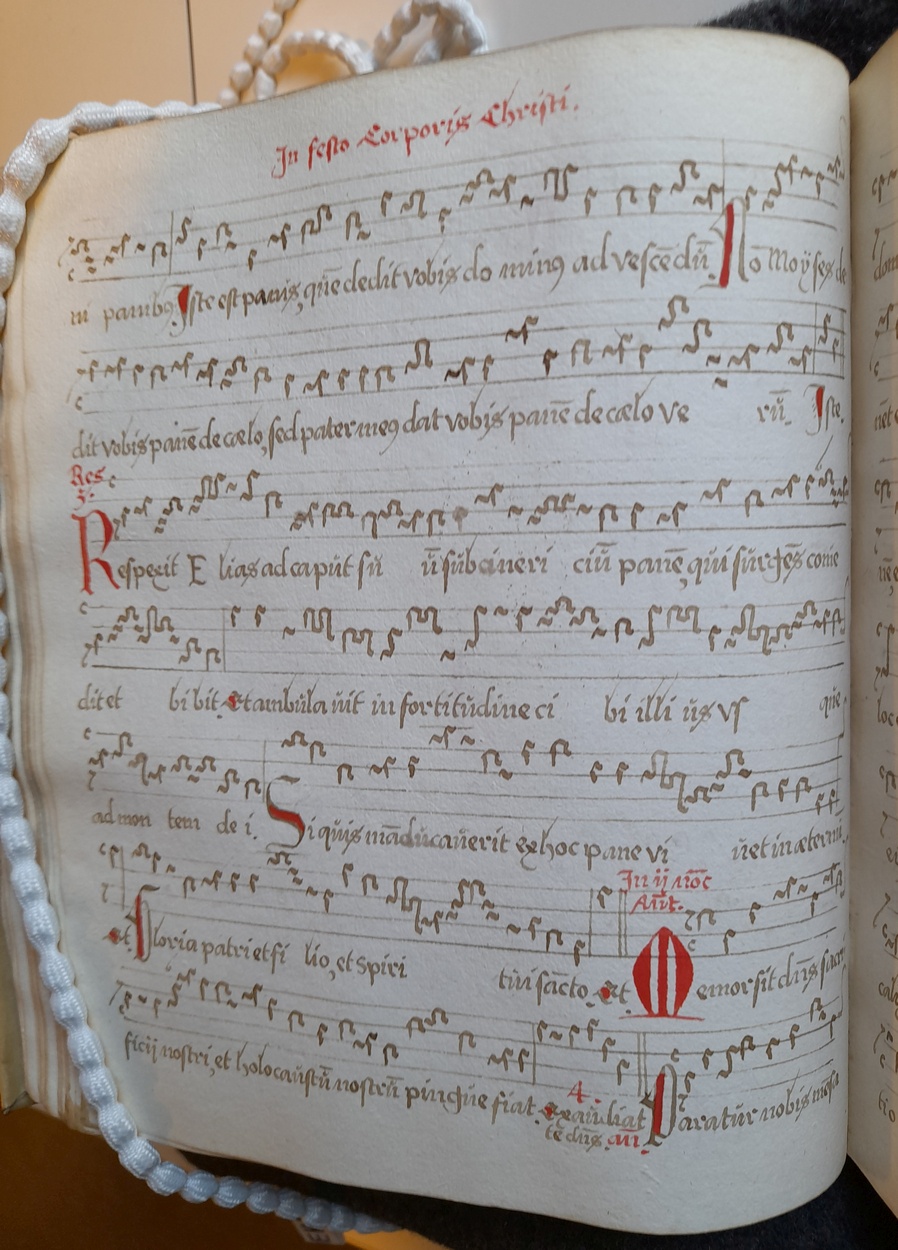 In festo Corporis Christi.
ni panibus Iste est panis, quē dedit vobis do minus ad vescēdū No Moyses de
dit vobis panē de cælo, sed pater meus dat vobis panē de cælo ve rū. Iste.
Res
3.
Respexit E lias ad caput su ū subcineri ciū panē, qui surgēs come
dit et bi bit. Et ambula uit in fortitudine ci bi illi us vs que
ad mon tem de i. Si quis māducauerit ex hoc pane vi uet in æternū.
In ij noc
Ant.
et Gloria patri et fi lio, et Spiri tui sācto. et Memor sit dn̄s sacri
ficij nostri, et holocaustū nostrū pingue fiat. exaudiat Paratur nobis mēsa
4.
te dn̄s. an